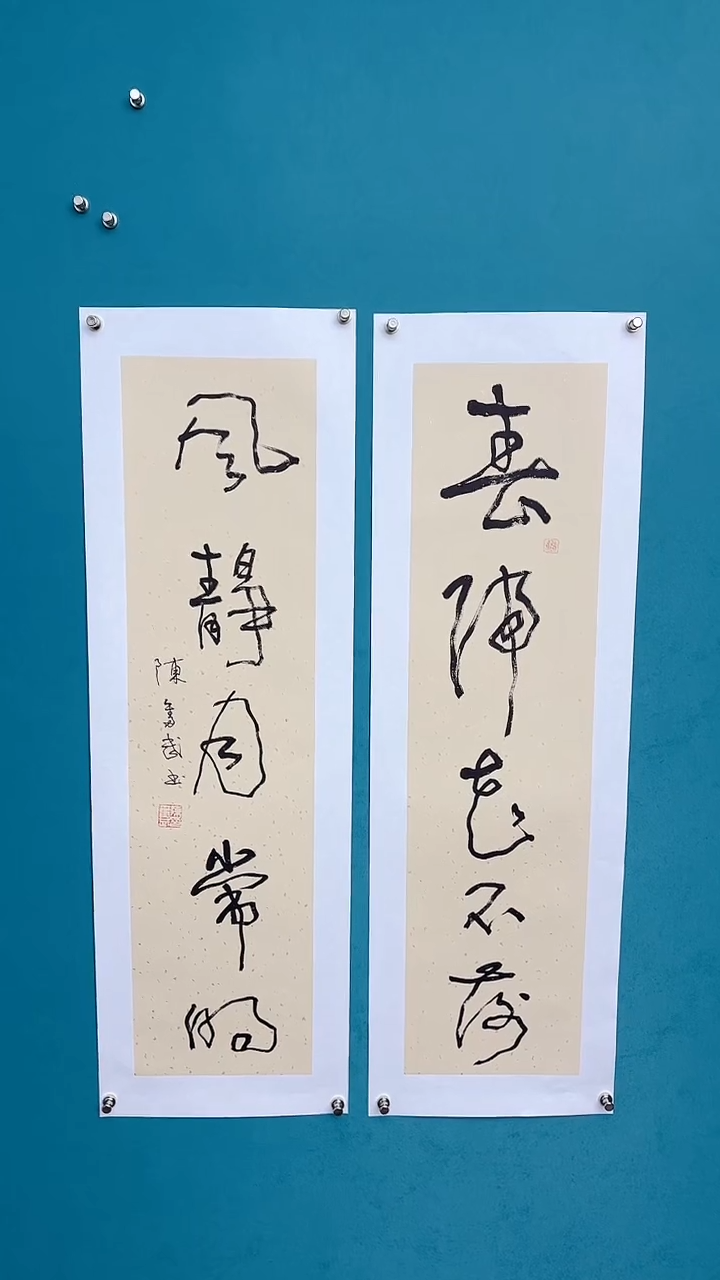 春歸花不落
風靜月常明
陳
書